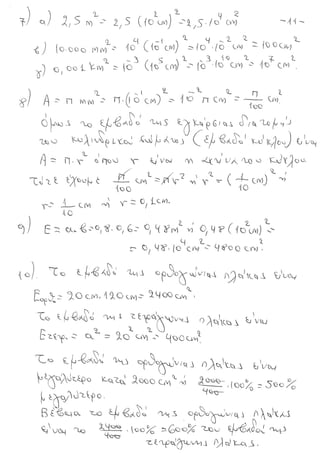 7) α) 2,5 m² = 2,5 (10² cm)² = 2,5·10⁴ cm² -11-
β) 10.000 mm² = 10⁴ (10⁻¹ cm)² = 10⁴·10⁻² cm² = 100 cm²
γ) 0,001 km² = 10⁻³ (10⁵ cm)² = 10⁻³·10¹⁰ cm² = 10⁷ cm².
8) A = π mm² = π·(10⁻¹ cm)² = 10⁻² π cm² = π/100 cm²
όμως το εμβαδό της εγκάρσιας διατομής
του κυλινδρικού σώματος (εμβαδό κύκλου) είναι
A = π·r² όπου r είναι η ακτίνα του κύκλου
Τότε έχουμε π/100 cm² = π r² ή r² = (1/10 cm)² ή
r = 1/10 cm ή r = 0,1 cm.
9) E = α·β = 0,8·0,6 = 0,48 m² ή 0,48 (10² cm)² =
= 0,48·10⁴ cm² = 4800 cm².
10) Το εμβαδό της ορθογώνιας πλάκας είναι
Eορθ = 20 cm·120 cm = 2400 cm².
Το εμβαδό της τετράγωνης πλάκας είναι
Eτετρ. = α² = 20² cm² = 400 cm².
Το εμβαδό της ορθογώνιας πλάκας είναι
μεγαλύτερο κατά 2000 cm² ή 2000/400 ·100% = 500%
μεγαλύτερο.
Βέβαια το εμβαδό της ορθογώνιας πλάκας
είναι το 2400/400 ·100% = 600% του εμβαδού της
τετράγωνης πλάκας.